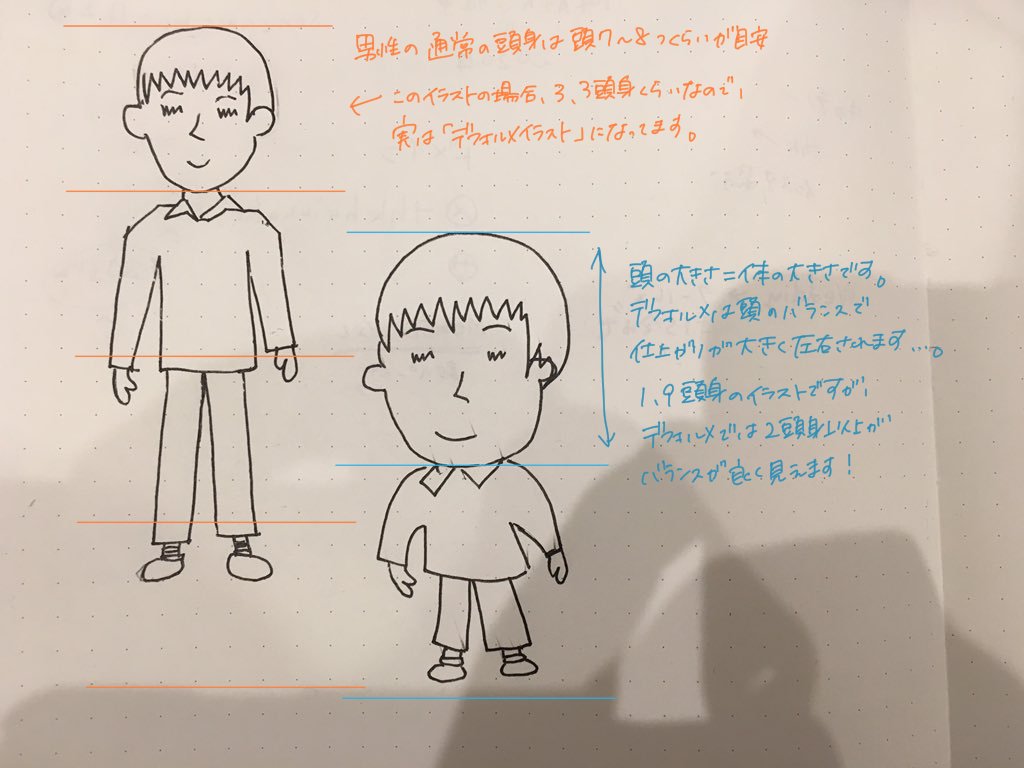 男性の通常の頭身は頭7〜8つくらいが目安
このイラストの場合、3、3頭身くらいなので、
実は「デフォルメイラスト」になってます。
頭の大きさ=体の大きさです。
デフォルメは頭のバランスで
仕上がりが大きく左右されます…。
1、9頭身のイラストですが、
デフォルメでは2頭身以上が
バランスが良く見えます!